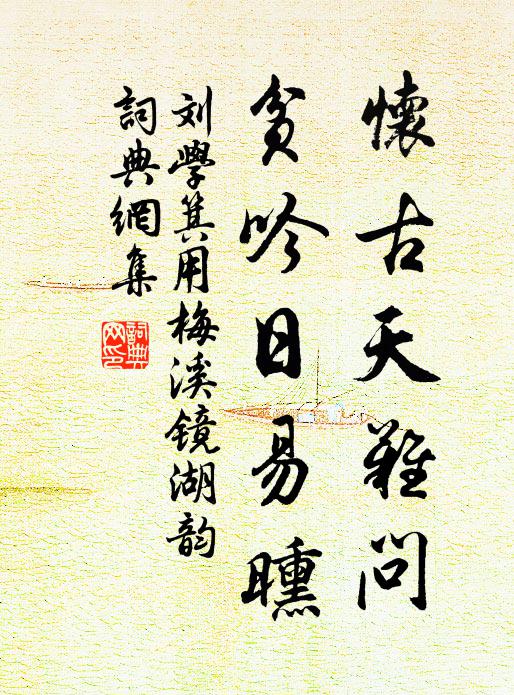 懷古天難問
貧吟日易曛
刘學箕用梅溪镜湖韵
詞典網集
詞典網印